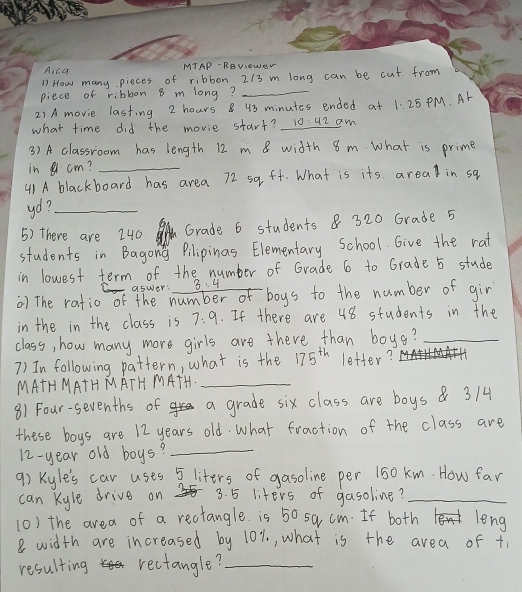 Aica
MTAP-Reviewer
1) How many pieces of ribbon 2/3 m long can be cut from a
piece of ribbon 8 m long?
2) A movie lasting 2 hours & 43 minutes ended at 1:25 PM. At
what time did the movie start? 10:42 am
3) A classroom has length 12 m & width 8 m. What is prime
in cm?
4) A blackboard has area 72 sq ft. What is its area in sq
yd?
5) There are 240 Grade 6 students & 320 Grade 5
students in Bagong Pilipinas Elementary School. Give the rat
in lowest term of the number of Grade 6 to Grade 5 stude
aswer: 3:4
6) The ratio of the number of boys to the number of gir
in the in the class is 7:9. If there are 48 students in the
class, how many more girls are there than boys?
7) In following pattern, what is the 175th letter? MATHMATH
MATH MATH MATH MATH.
8) Four-sevenths of a grade six class are boys & 3/4
these boys are 12 years old. What fraction of the class are
12-year old boys?
9) Kyle's car uses 5 liters of gasoline per 160 km. How far
can Kyle drive on 3.5 liters of gasoline?
10) the area of a rectangle is 50 sq cm. If both leng
& width are increased by 10%, what is the area of t
resulting rectangle?